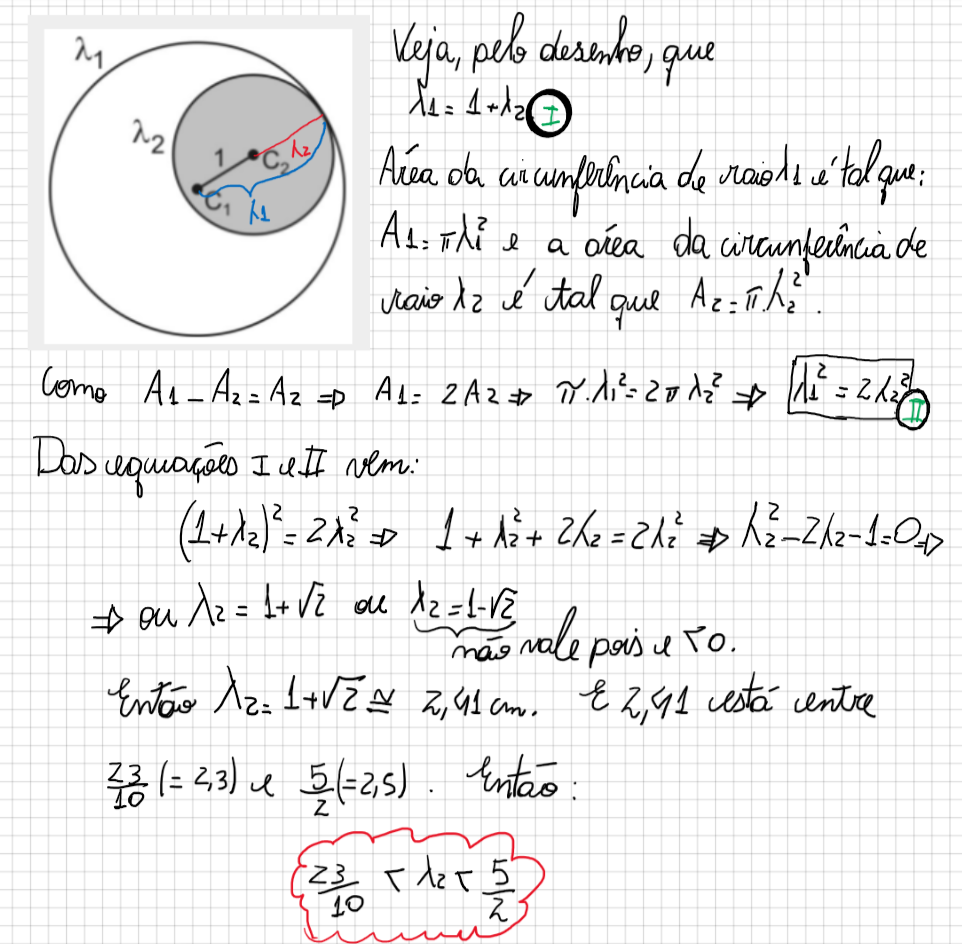 λ1
λ2
1
C2
λ2
C1
λ1
Veja, pelo desenho, que
λ1 = 1 + λ2 I
Área da circunferência de raio λ1 é tal que:
A1 = πλ1² e a área da circunferência de
raio λ2 é tal que A2 = π.λ2².
Como A1 - A2 = A2 ⇒ A1 = 2A2 ⇒ π.λ1² = 2πλ2² ⇒ λ1² = 2λ2² II
Das equações I e II vem:
(1+λ2)² = 2λ2² ⇒ 1 + λ2² + 2λ2 = 2λ2² ⇒ λ2² - 2λ2 - 1 = 0 ⇒
⇒ ou λ2 = 1+√2 ou λ2 = 1-√2
não vale pois é < 0.
Então λ2 = 1+√2 ≅ 2,41 cm. E 2,41 está entre
23/10 (= 2,3) e 5/2 (= 2,5). Então:
23/10 < λ2 < 5/2